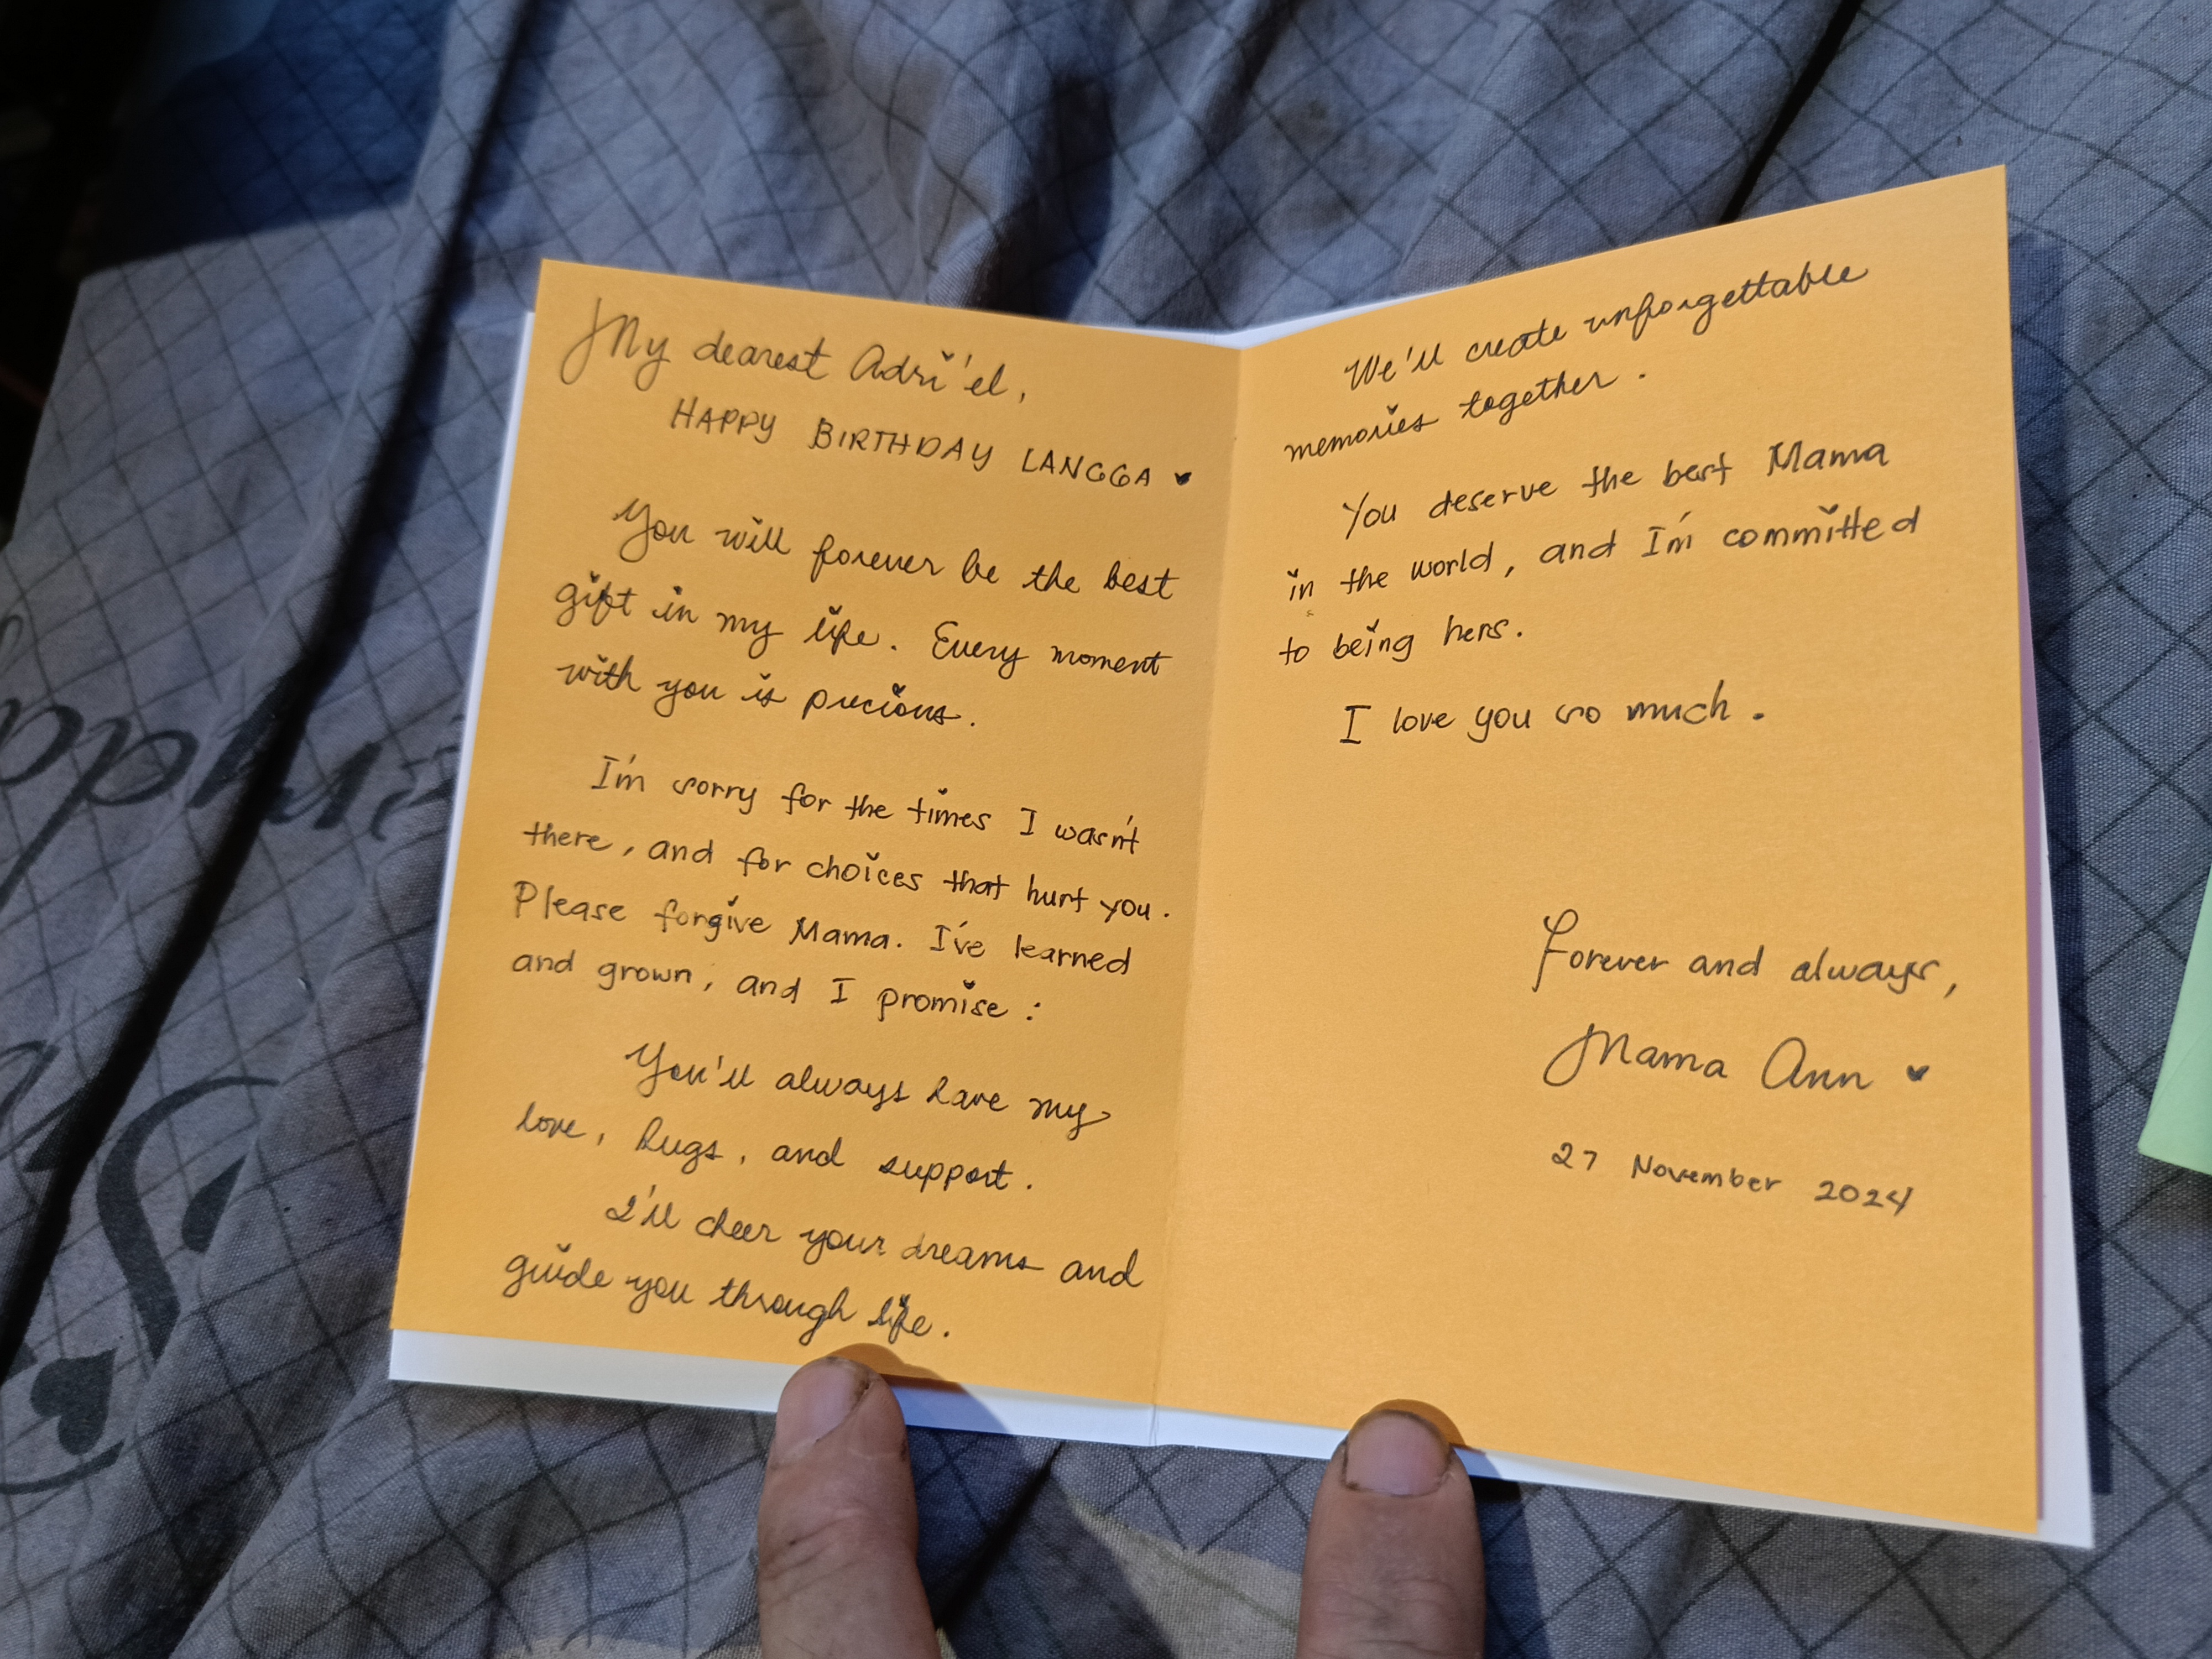 My dearest Adri'el,
HAPPY BIRTHDAY LANGGA ♥
You will forever be the best
gift in my life. Every moment
with you is precious.
I'm sorry for the times I wasn't
there, and for choices that hurt you.
Please forgive Mama. I've learned
and grown, and I promise:
You'll always have my
love, hugs, and support.
I'll cheer your dreams and
guide you through life.
We'll create unforgettable
memories together.
You deserve the best Mama
in the world, and I'm committed
to being hers.
I love you so much.
Forever and always,
Mama Ann ♥
27 November 2024